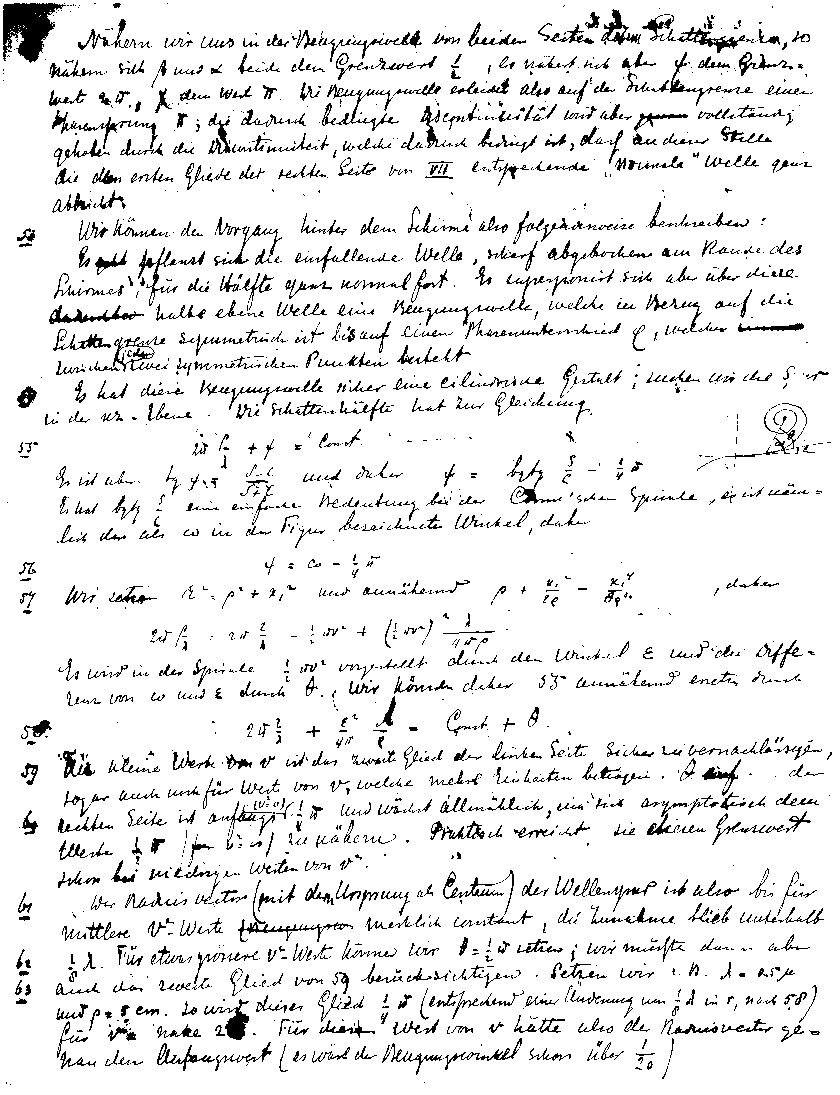 Nähern wir uns in der Beugungswelle von beiden Seiten dem Schattengrenze, so
nähern sich β und α beide den Grenzwert ½, es nähert sich aber ψ dem Grenz-
wert 2π, χ dem Wert π. Die Beugungswelle erleidet also auf der Schattengrenze einen
Phasensprung π; die dadurch bedingte Discontinuität wird aber vollständig
gehoben durch die Discontinuität, welche dadurch bedingt ist, dasz an dieser Stelle
die dem ersten Gliede der rechten Seite von VII entsprechende "normale" Welle ganz
abbricht.
Wir können den Vorgang hinter dem Schirme also folgenderweise beschreiben:
Es pflanzt sich die einfallende Welle, scharf abgebrochen am Rande des
Schirmes, für die Hälfte ganz normal fort. Es superponirt sich aber über diese
halbe ebene Welle eine Beugungswelle, welche in Bezug auf die
Schattengrenze symmetrisch ist bis auf einen Phasenunterschied φ, welcher
zwischen zwei symmetrischen Punkten besteht.
Es hat diese Beugungswelle sicher eine cilindrische Gestalt; suchen wir die
in der xz-Ebene. Die Schattenhälfte hat zur Gleichung
55 2π ρ/λ + ψ = Const.
Es ist aber und daher ψ = bgtg S/C − ¼π
Es hat bgtg S/C eine einfache Bedeutung bei der Cornu'schen Spirale, es ist näm-
lich der als ω in der Figur bezeichnete Winkel, daher
56 ψ = ω − ¼π
57 Wir setzen r² = ρ² + x₁² und annähernd , daher
2π ρ/λ = 2π r/λ − ½πv² + (½πv²)² λ/4πρ
Es wird in der Spirale ½πv² vorgestellt durch den Winkel ε und die Diffe-
renz von ω und ε durch θ. Wir können daher 55 annähernd ersetzen durch
2π r/λ + ε²/4π λ/ρ = Const + θ.
59 Für kleine Werte von v ist das zweite Glied der linken Seite sicher zu vernachlässigen,
sogar auch noch für Werte von v, welche mehrere Einheiten betragen. θ auf der
rechten Seite ist anfangs (v=0) ¼π und wächst allmählich, um sich asymptotisch dem
Werte ½π (für v=∞) zu nähern. Praktisch erreicht sie diesen Grenzwert
schon bei niedrigen Werten von v.
61 Der Radius vector (mit dem Ursprung als Centrum) der Wellenspur ist also bis für
mittlere v-Werte merklich constant, die Zunahme blieb unterhalb
62 ⅛λ. Für etwas grössere v-Werte können wir θ=½π setzen; wir müszte dann aber
63 auch das zweite Glied von 59 berücksichtigen. Setzen wir z.B. λ = 0.5μ
und ρ = 5 cm. so wird dieses Glied ¼π (entsprechend einer Änderung von ⅛λ in r, nach 58)
für v = nahe Für diesen Wert von v hätte also der Radiusvector ge-
nau den Anfangswert (es wäre der Beugungswinkel schon über 1/20)